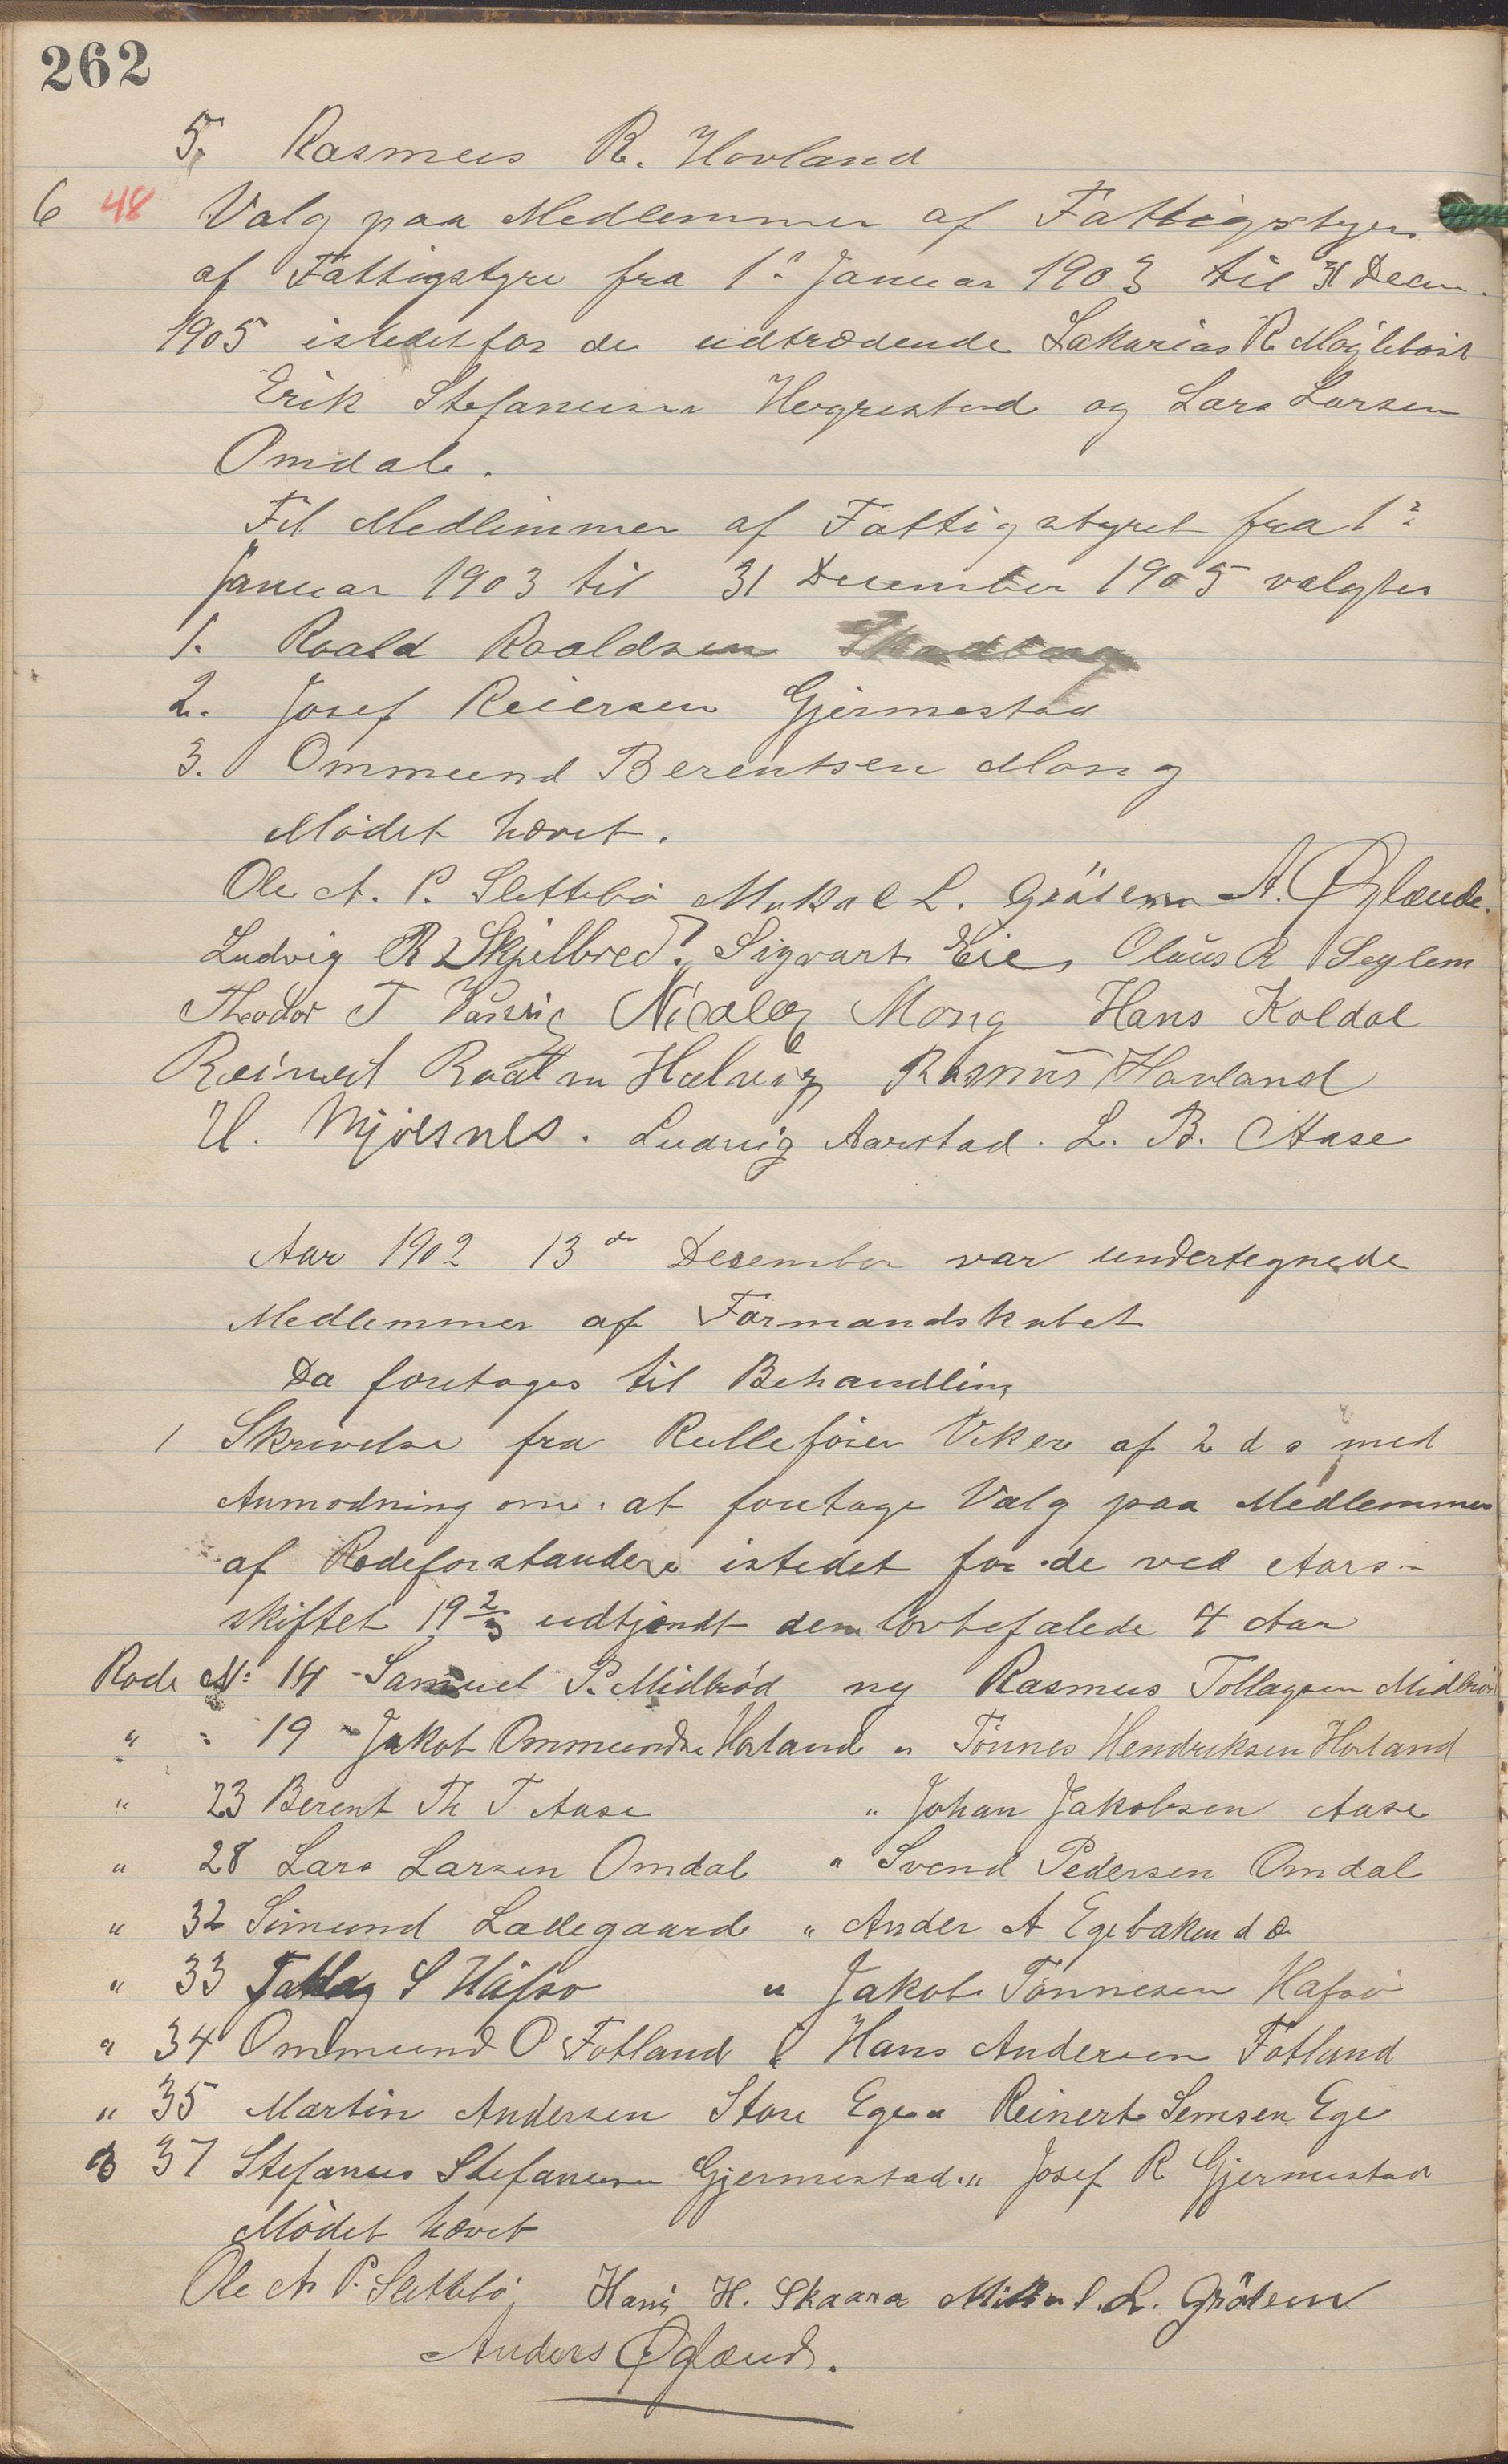 262
5. Rasmus R. Hovland
6 48 Valg paa Medlemmer af Fattigstyre
af Fattigstyre fra 1ª Januar 1903 til 31 Decem.
1905 istedetfor de udtrædende Sakarias R Møglebøst
Erik Stefanusen Hegrestad og Lars Larsen
Omdal.
Til Medlemmer af Fattigstyret fra 1ª
Januar 1903 til 31 December 1905 valgtes
1. Roald Roaldsen
2. Josef Reiersen Gjermestad
3. Ommund Berentsen Mong
Mødet hævet.
Ole A. P. Slettebø Mikal L. Grøsem A. Øglænd.
Ludvig R Skjelbred. Sigvart Eie, Olaus R Seglem
Theodor T Nicolay Mong Hans Koldal
Reinert Roaldsen Helvig Rasmus Havland
U. Mjølsnes. Ludvig Aarstad. L. B. Aase
Aar 1902 13de Desember var undertegnede
Medlemmer af Formandskabet
Da foretages til Behandling
1 Skrivelse fra Rullefører Viker af 2 d s med
Anmodning om at foretage Valg paa Medlemmer
af Rodeforstandere istedet for de ved Aars-
skiftet 19 2/3 udtjendt den lovbefalede 4 Aar
Rode No 14 - Samuel P. Midbrød ny Rasmus Tollagsen Midbrød
" " 19 - Jakob Ommundsen Hovland " Tønnes Hendriksen Hovland
" 23 Berent Th T Aase " Johan Jakobsen Aase
" 28 Lars Larsen Omdal " Svend Pedersen Omdal
" 32 Simund Ladegaard " Ander A Egebaken
" 33 Tollag S Hafsø " Jakob Tønnesen Hafsø
" 34 Ommund O Fotland " Hans Andersen Fotland
" 35 Martin Andersen Store Ege " Reinert Semsen Ege
" 37 Stefanus Stefanusen Gjermestad " Josef R Gjermestad
Mødet hævet
Ole A P. Slettebø Hans H. Skaara Mikal L. Grøsem
Anders Øglænd.